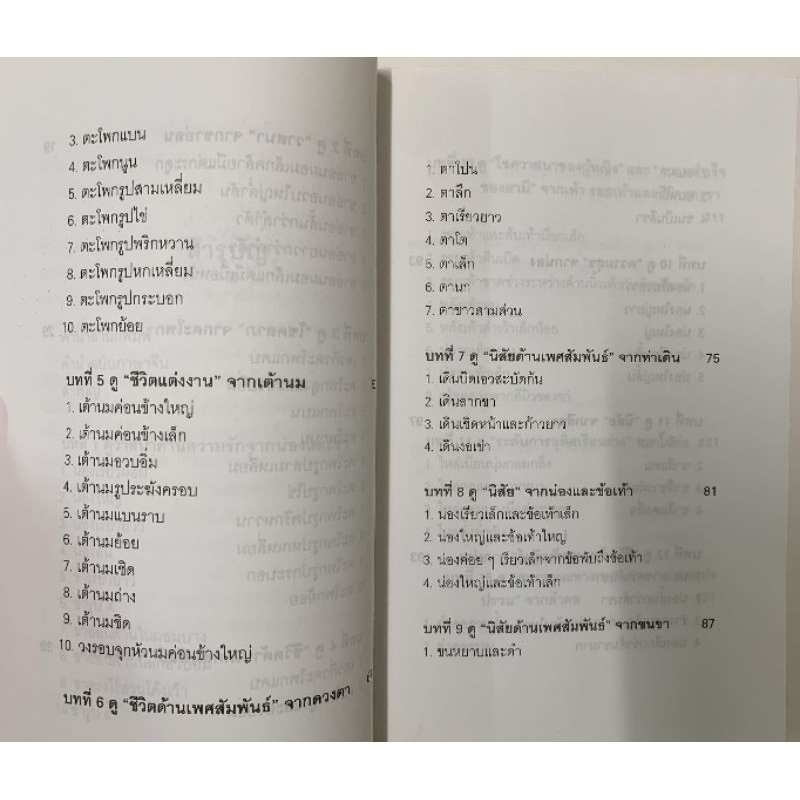 3. ตะโพกแบน
4. ตะโพกนูน
5. ตะโพกรูปสามเหลี่ยม
6. ตะโพกรูปไข่
7. ตะโพกรูปพริกหวาน
8. ตะโพกรูปหกเหลี่ยม
9. ตะโพกรูปกระบอก
10. ตะโพกย้อย
บทที่ 5 ดู "ชีวิตแต่งงาน" จากเต้านม
1. เต้านมค่อนข้างใหญ่
2. เต้านมค่อนข้างเล็ก
3. เต้านมอวบอิ่ม
4. เต้านมรูประฆังครอบ
5. เต้านมแบนราบ
6. เต้านมย้อย
7. เต้านมเชิด
8. เต้านมถ่าง
9. เต้านมชิด
10. วงรอบจุกหัวนมค่อนข้างใหญ่
บทที่ 6 ดู "ชีวิตด้านเพศสัมพันธ์" จากดวงตา
1. ตาโปน
2. ตาลึก
3. ตาเรียวยาว
4. ตาโต
5. ตาเล็ก
6. ตานก
7. ตาขาวสามส่วน
บทที่ 7 ดู "นิสัยด้านเพศสัมพันธ์" จากท่าเดิน 75
1. เดินบิดเอวสะบัดก้น
2. เดินลากขา
3. เดินเชิดหน้าและก้าวยาว
4. เดินงอเข่า
บทที่ 8 ดู "นิสัย" จากน่องและข้อเท้า 81
1. น่องเรียวเล็กและข้อเท้าเล็ก
2. น่องใหญ่และข้อเท้าใหญ่
3. น่องค่อย ๆ เรียวเล็กจากข้อพับถึงข้อเท้า
4. น่องใหญ่และข้อเท้าเล็ก
บทที่ 9 ดู "นิสัยด้านเพศสัมพันธ์" จากขนขา 87
1. ขนหยาบและดำ